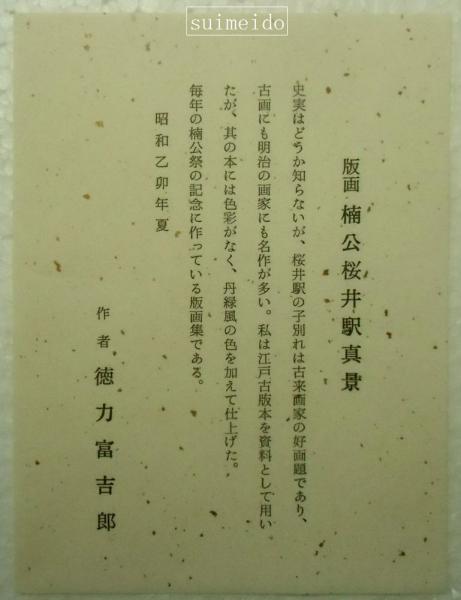 suimeido
版画 楠公桜井駅真景
史実はどうか知らないが、桜井駅の子別れは古来画家の好画題であり、
古画にも明治の画家にも名作が多い。私は江戸古版本を資料として用い
たが、其の本には色彩がなく、丹緑風の色を加えて仕上げた。
毎年の楠公祭の記念に作っている版画集である。
昭和乙卯年夏
作者 徳力富吉郎